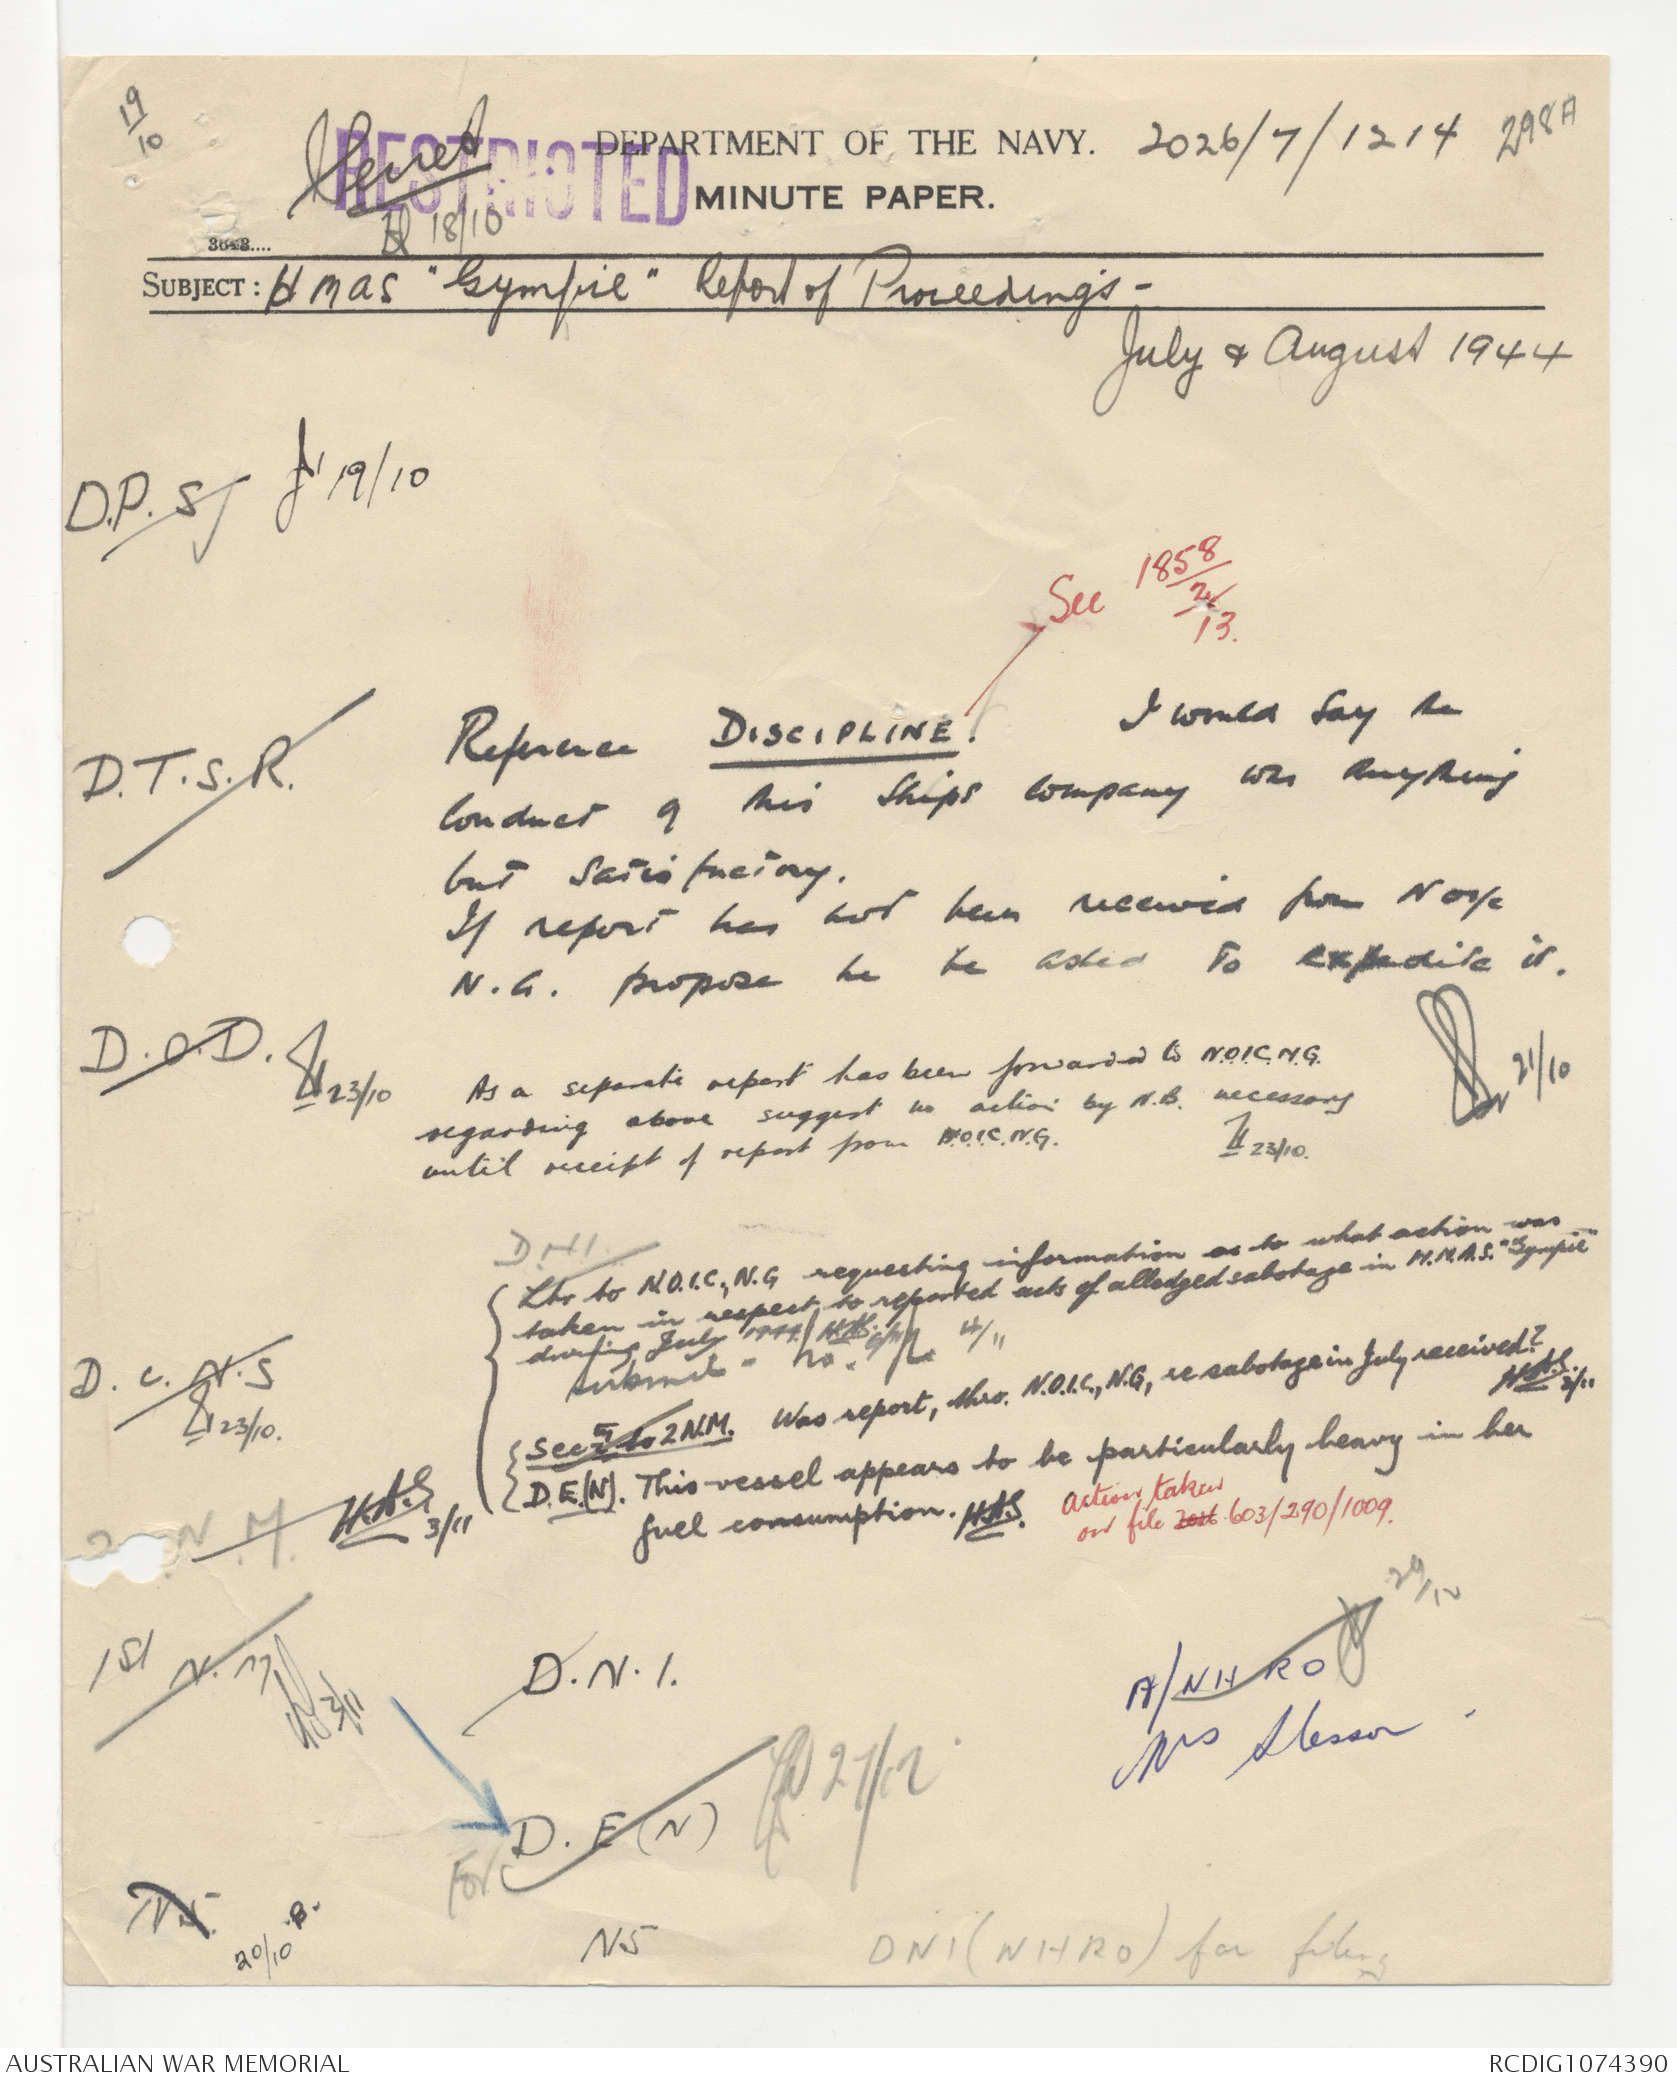 19/10
Secret
RESTRICTED
18/10
DEPARTMENT OF THE NAVY. 2026/7/1214 298A
MINUTE PAPER.
SUBJECT: HMAS "Gympie" Report of Proceedings -
July & August 1944
D.P.S 19/10
See 1858/2/13.
D.T.S.R.
Reference DISCIPLINE. I would say the
conduct of this ships company was anything
but satisfactory.
If report has not been received from NOIC
N.G. propose he be asked to expedite it.
21/10
D.O.D. 23/10
As a separate report has been forwarded to N.O.I.C.N.G.
regarding above suggest no action by N.B. necessary
until receipt of report from N.O.I.C.N.G.
23/10.
D.N.I.
Ltr to N.O.I.C., N.G requesting information as to what action was
taken in respect to reported acts of alledged sabotage in H.M.A.S. "Gympie"
during July 1944. H.A.S.
submitted 4/11
D.C.N.S
23/10.
Sec to 2 N.M. Was report, thro. N.O.I.C., N.G, re sabotage in July received?
H.A.S. 3/11
D.E.(N). This vessel appears to be particularly heavy in her
fuel consumption. H.A.S.
Action taken
on file 603/290/1009.
2 N.M. H.A.S. 3/11
1st N.M 3/11
D.N.I.
A/NHRO 29/12
Mrs Slesser
For D.E(N) 27/12
N.S.
20/10
NS
DNI (NHRO) for filing
AUSTRALIAN WAR MEMORIAL
RCDIG1074390